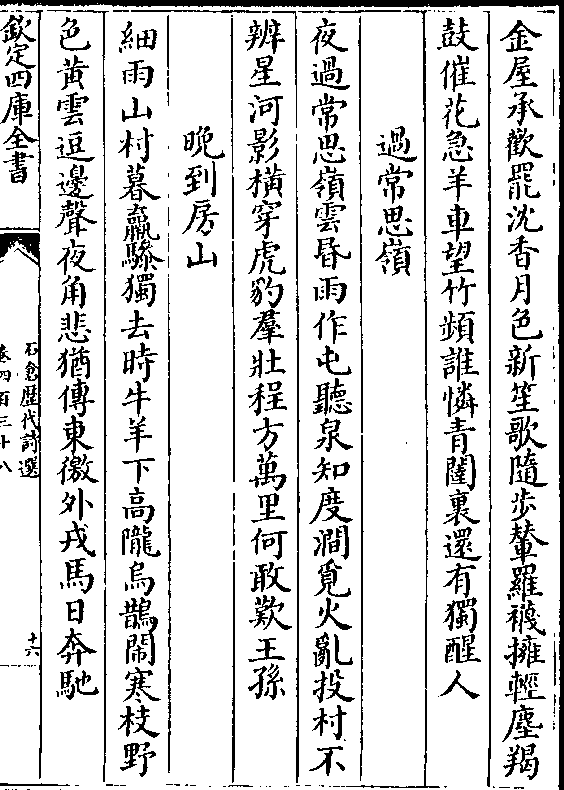 金屋承歡罷沈香月色新笙歌隨步輦羅襪擁輕塵羯
鼓催花急羊車望竹頻誰憐青閨裏還有獨醒人
過常思嶺
夜過常思嶺雲昏雨作屯聽泉知度澗覓火亂投村不
辨星河影橫穿虎豹羣壯程方萬里何敢歎王孫
晚到房山
細雨山村暮羸驂獨去時牛羊下高隴烏鵲鬧寒枝野
色黃雲逗邊聲夜角悲猶傳東徼外戎馬日奔馳
欽定四庫全書
石倉歷代詩選
卷四百三十八
十六